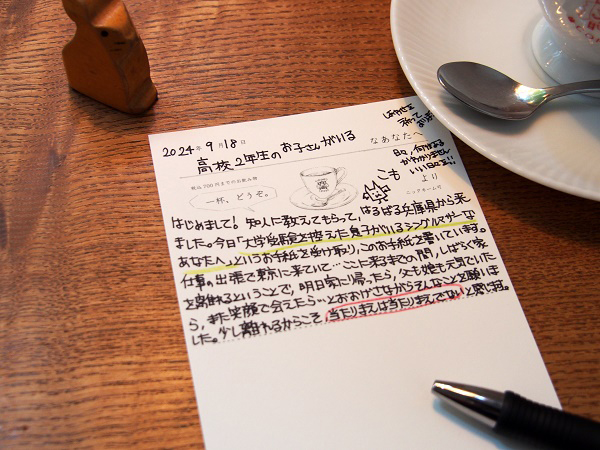 2024年 9月18日
高校2年生のお子さんがいる
なあなたへ
しあわせを
祈って
おります
日々、何がある
かわかりません
いい日々を!!
税込700円までのお飲み物
一杯、どうぞ。
こも より
ニックネーム可
はじめまして! 知人に教えてもらって、はるばる兵庫県から来
ました。今日「大学受験を控えた息子がいるシングルマザーな
あなたへ」というお手紙を受け取り、このお手紙を書いています。
仕事の出張で東京に来ていて…ここに来るまでの間、しばらく家
を離れるということで、明日家に帰ったら、父も娘も元気でいた
ら、また笑顔で会えたら…とおおげさながらそんなことを願いま
した。少し離れるからこそ、当たりまえは当たりまえでないと感じます。